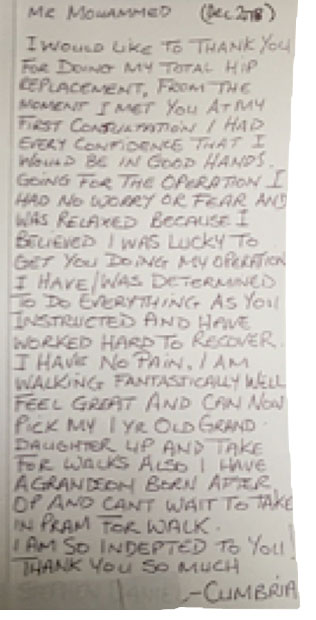 MR MOHAMMED (DEC 2018)
I WOULD LIKE TO THANK YOU
FOR DOING MY TOTAL HIP
REPLACEMENT, FROM THE
MOMENT I MET YOU AT MY
FIRST CONSULTATION I HAD
EVERY CONFIDENCE THAT I
WOULD BE IN GOOD HANDS.
GOING FOR THE OPERATION I
HAD NO WORRY OR FEAR AND
WAS RELAXED BECAUSE I
BELIEVED I WAS LUCKY TO
GET YOU DOING MY OPERATION
I HAVE/WAS DETERMINED
TO DO EVERYTHING AS YOU
INSTRUCTED AND HAVE
WORKED HARD TO RECOVER.
I HAVE NO PAIN. I AM
WALKING FANTASTICALLY WELL
FEEL GREAT AND CAN NOW
PICK MY 1 YR OLD GRAND
DAUGHTER UP AND TAKE
FOR WALKS ALSO I HAVE
A GRANDSON BORN AFTER
OP AND CANT WAIT TO TAKE
IN PRAM FOR WALK.
I AM SO INDEPTED TO YOU!
THANK YOU SO MUCH
-CUMBRIA